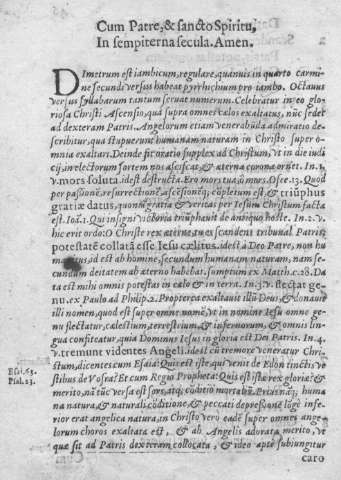 Cum Patre, & sancto Spiritu,
In sempiterna secula. Amen.
Dimetrum est iambicum, regulare, quanuis in quarto carmi-
ne secundi versus habeat pyrrhichium pro iambo. Octauus
versus syllabarum tantum seruat numerum. Celebratur in eo glo-
riosa Christi Ascensio, qua supra omnes cælos exaltatus, nūc sedet
ad dexteram Patris. Angelorum etiam venerabūda admiratio de-
scribitur, qua stupuerūt humanam naturam in Christo super o-
mnia exaltari. Deinde fit oratio supplex ad Christum, vt in die iudi-
cij, in electorum sortem nos asciscat, & æterna corona ornet. In 1.
v. mors soluta, idest destructa. Ero mors tua, ô mors. Osee. 13. Quod
per passionē, resurrectionē, ascēsionēq; cōpletum est, & triūphus
gratiæ datus, quoniā gratia & veritas per Iesum Christum facta
est. Ioā. 1. Qui insigni victoria triūphauit de antiquo hoste. In 2. v.
hic erit ordo: O Christe rex æterne, tuæ scandens tribunal Patris,
potestatē collatā esse Iesu cælitus, idest à Deo Patre, non hu
manitus, id est ab homine, secundum humanam naturam, nam se-
cundum deitatem ab æterno habebat. sumptum ex Matth. c. 28. Da
ta est mihi omnis potestas in cælo & in terra. In 3. v. flectat ge-
nu. ex Paulo ad Philip. 2. Propter qð exaltauit illū Deus, & donauit
illi nomen, quod est super omne nomē, vt in nomine Iesu omne ge-
nu flectatur, cælestium, terrestrium, & infernorum, & omnis lin-
gua confiteatur, quia Dominus Iesus in gloria est Dei Patris. In 4.
v. tremunt videntes Angeli. idest cū tremore venerātur Chri-
stum, dicentes cum Esaia: Quis est iste, qui venit de Edon tinctis ve
Esai. 63. stibus de Bosra? Et cum Regio Propheta: Quis est iste rex gloriæ? &
Psal. 23. merito, nā tūc versa est sors, atq; cōditio mortaliū. Prius nāq; huma
na natura, & naturali cōditione, & peccati depressione lōgè infe-
rior erat angelica natura, in Christo verò eadē super omnes ange-
lorum choros exaltata est, & ab Angelis adorata merito, vt
quæ sit ad Patris dexteram collocata, & ideo aptè subiungitur
caro